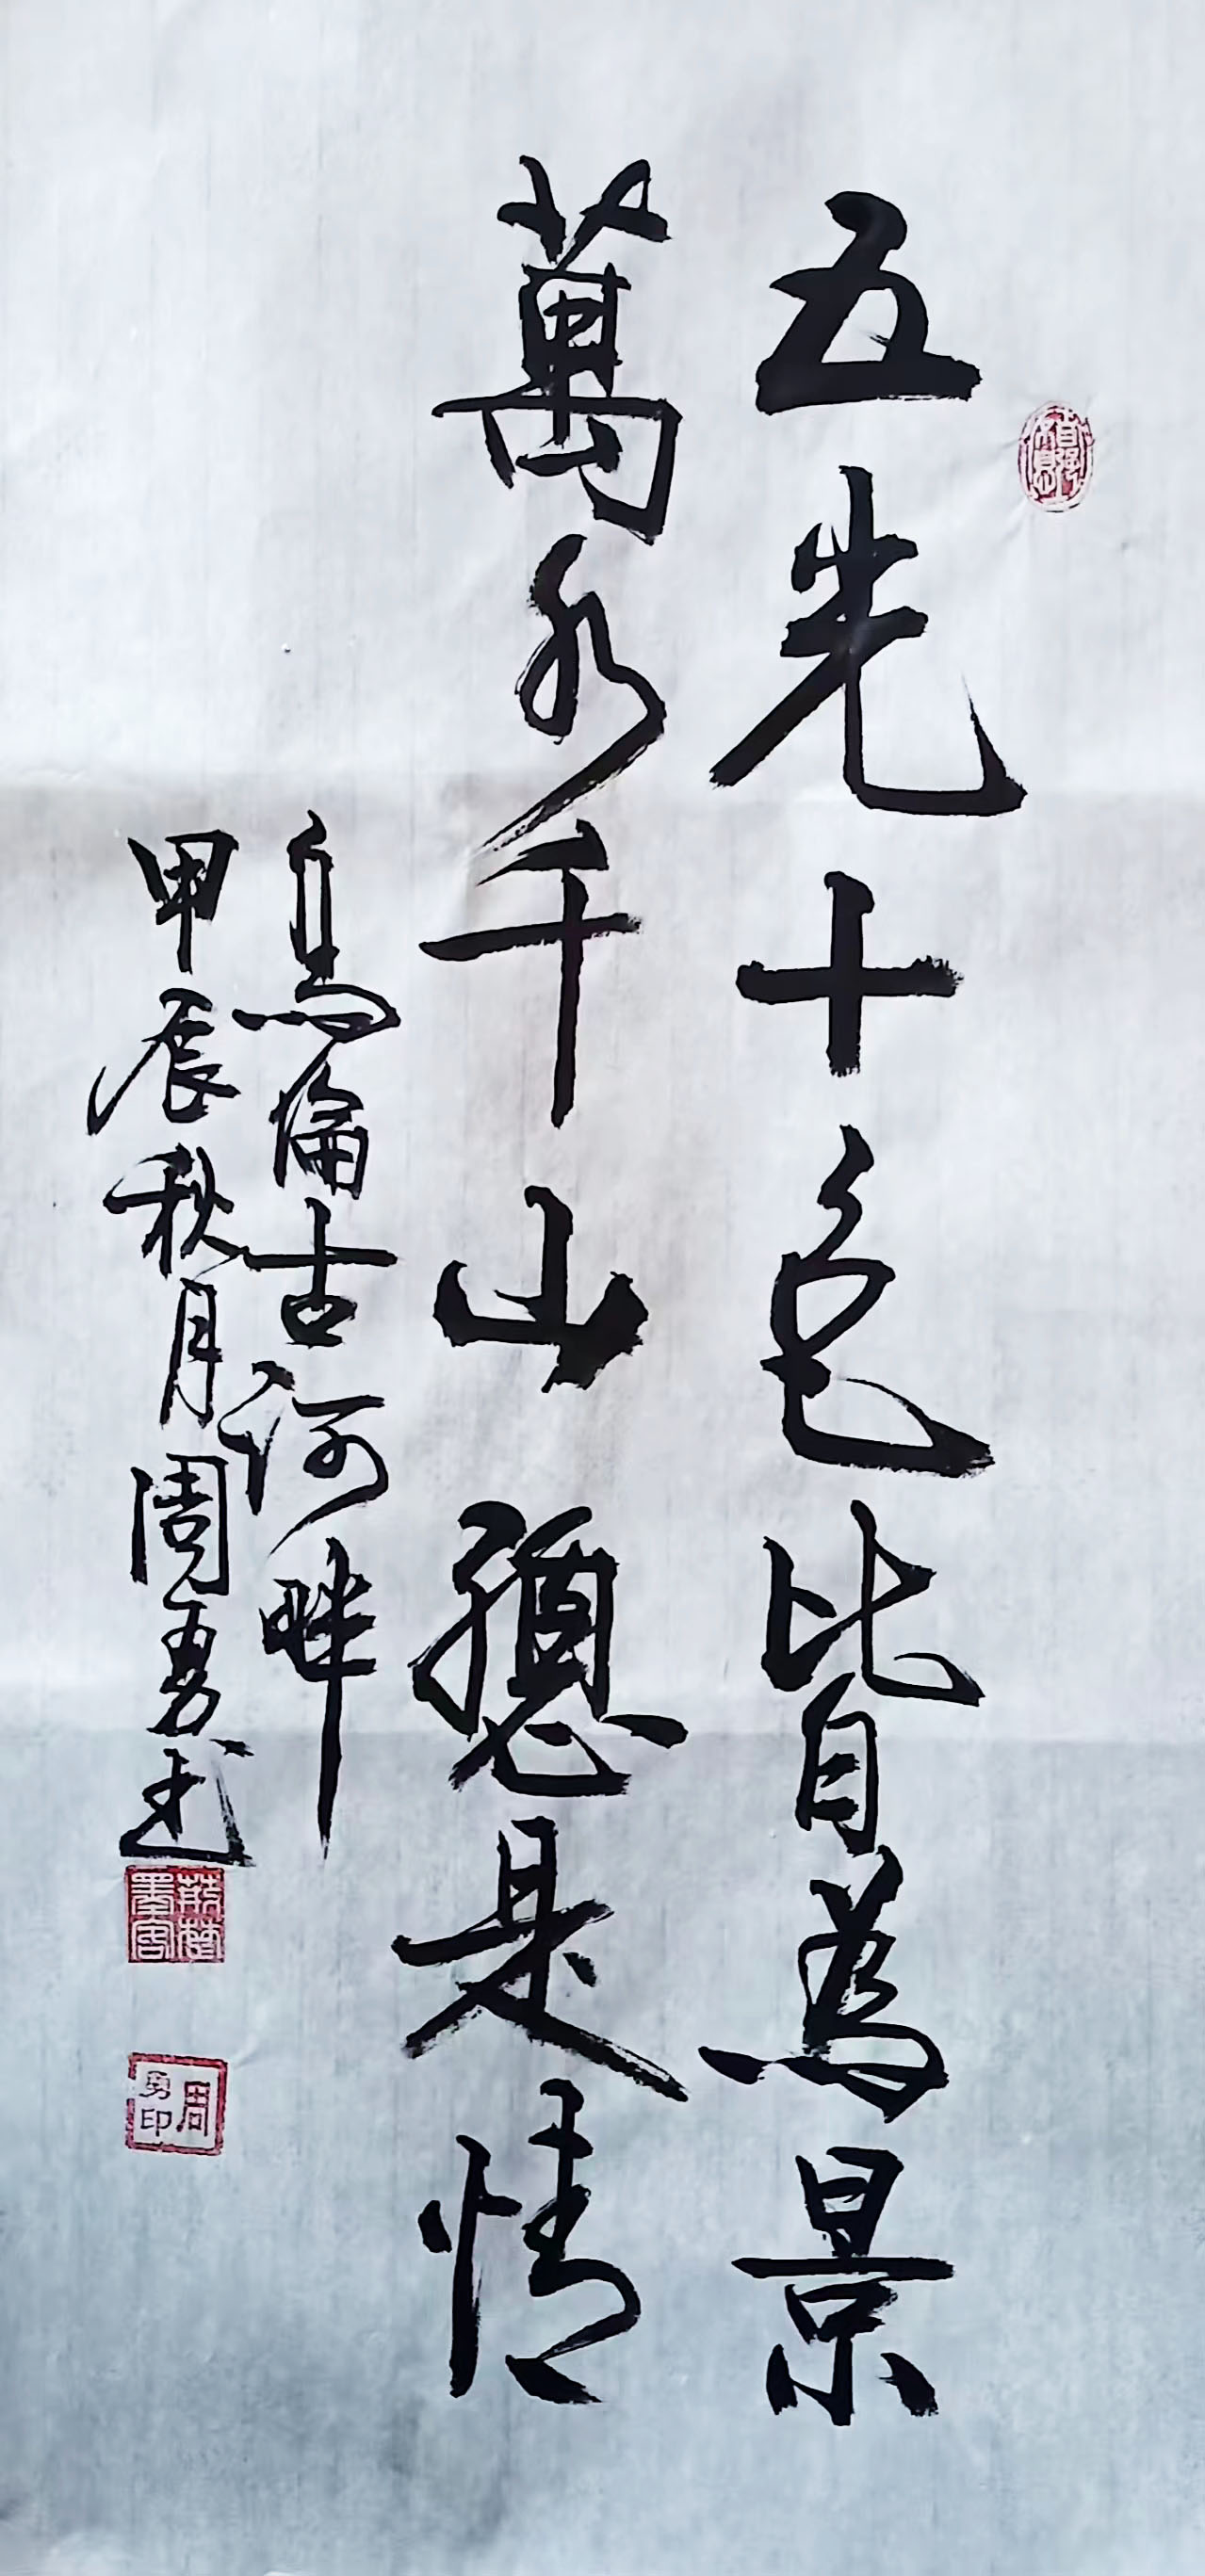 五光十色皆為景
萬水千山總是情
烏倫古河畔
甲辰秋月周勇书
荊楚墨客
周勇印